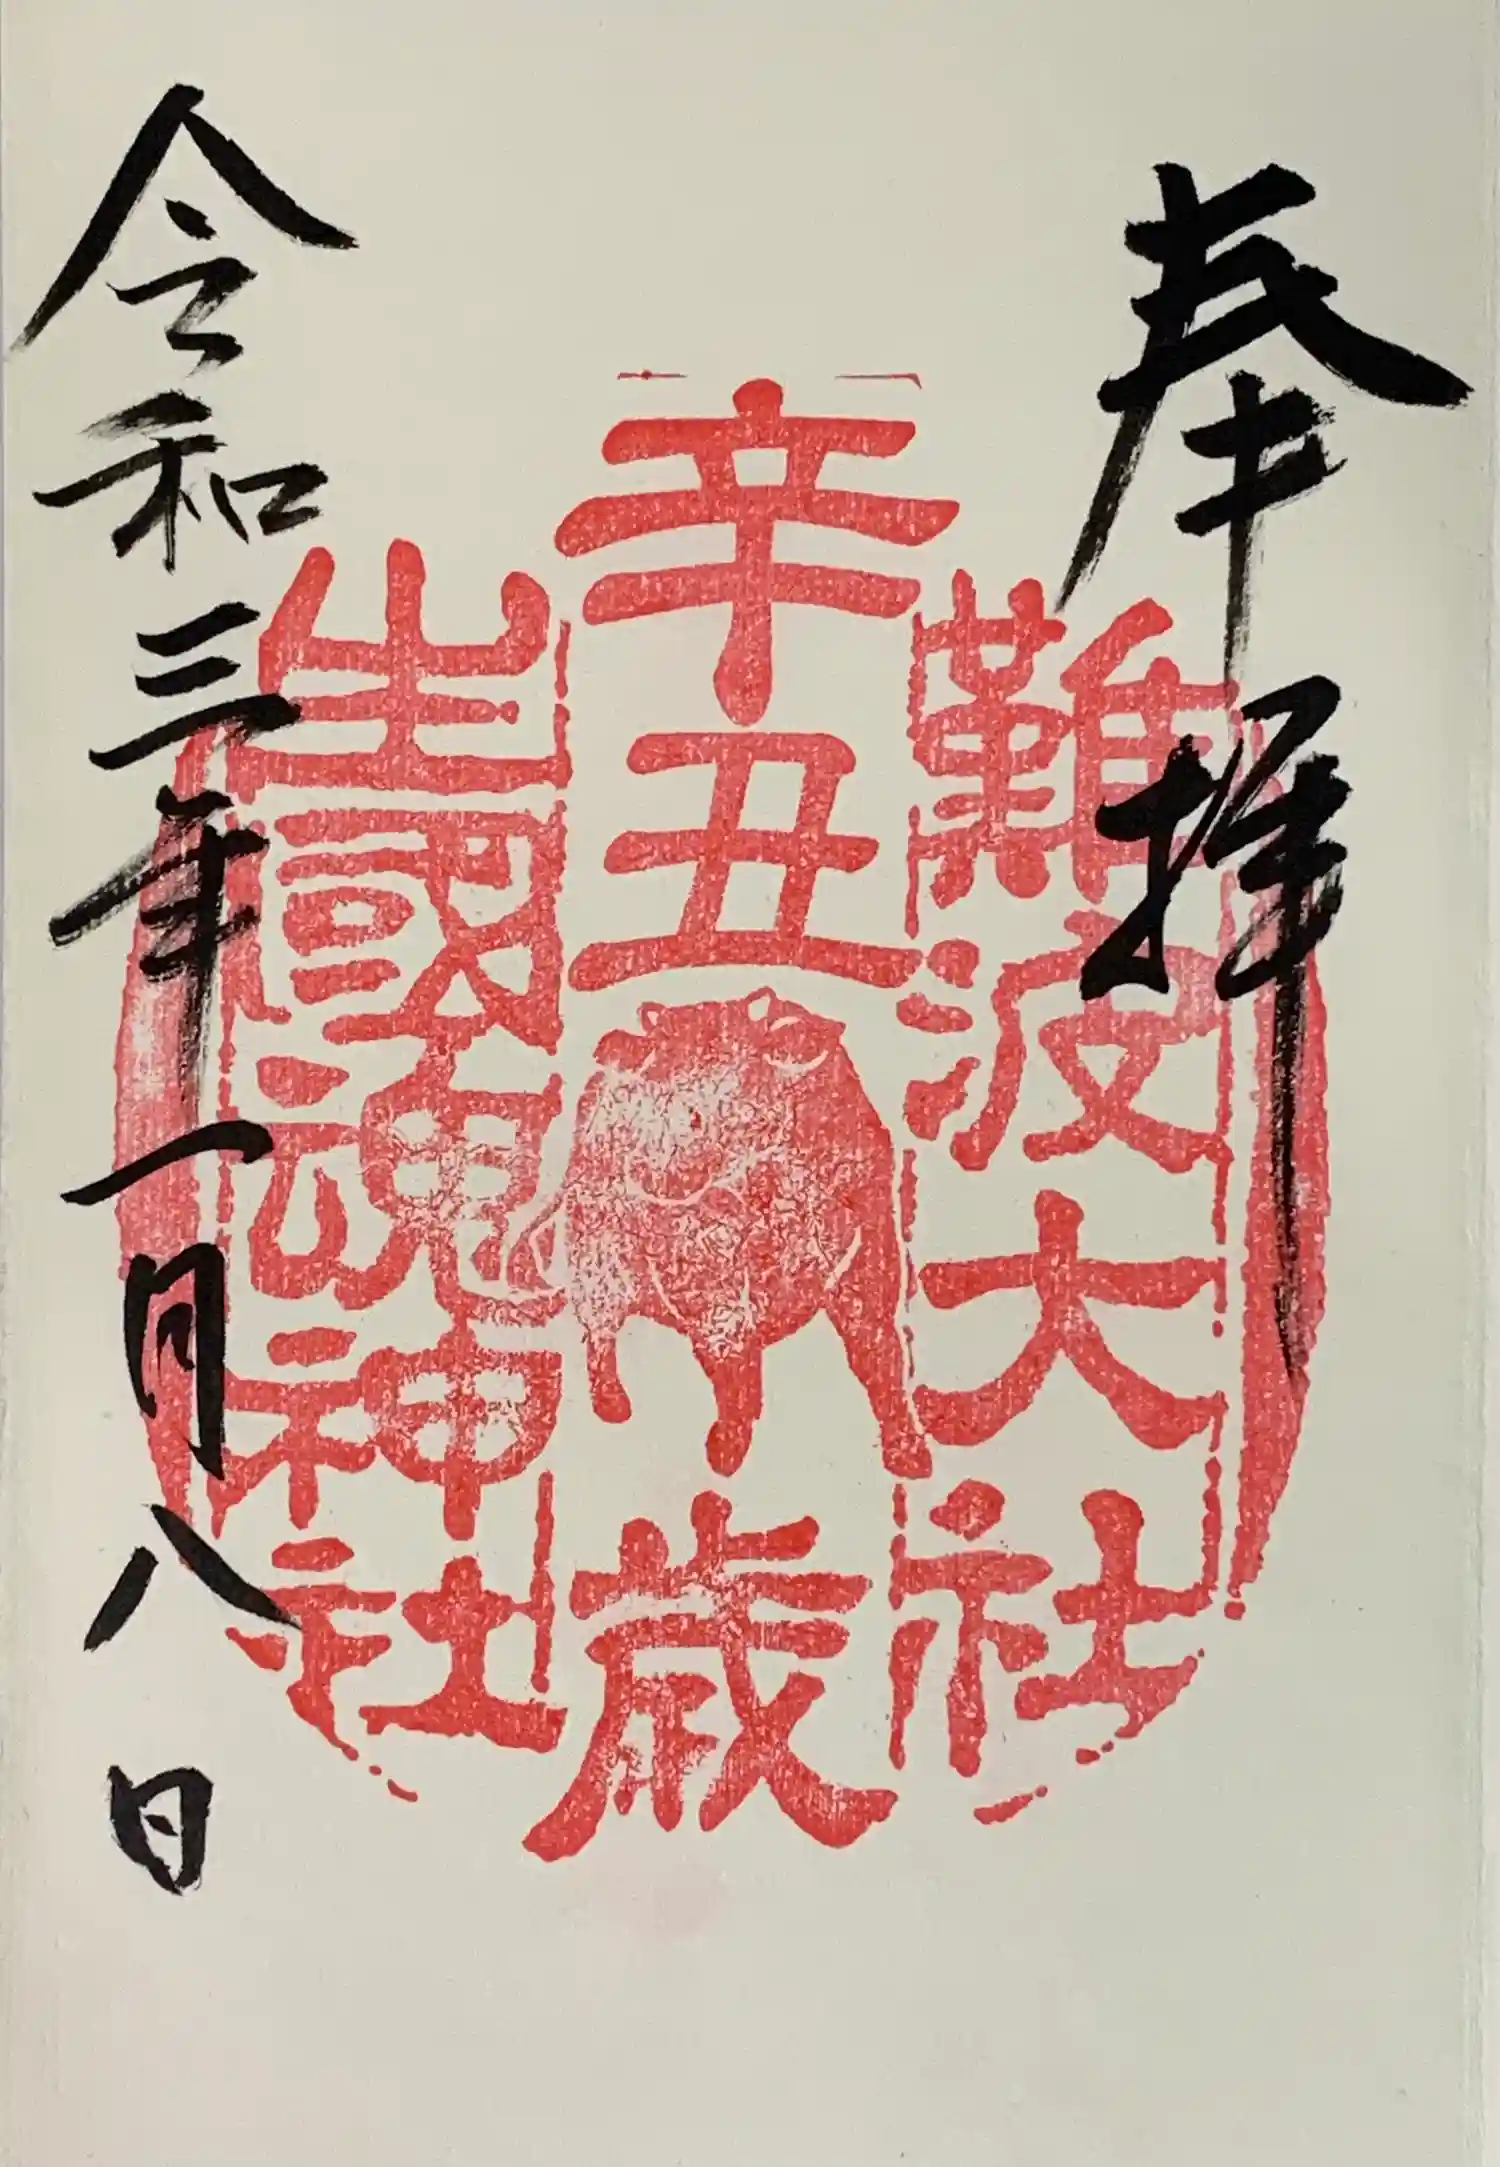 奉拝
難波大社
辛丑歳
生國魂神社
令和三年一月八日